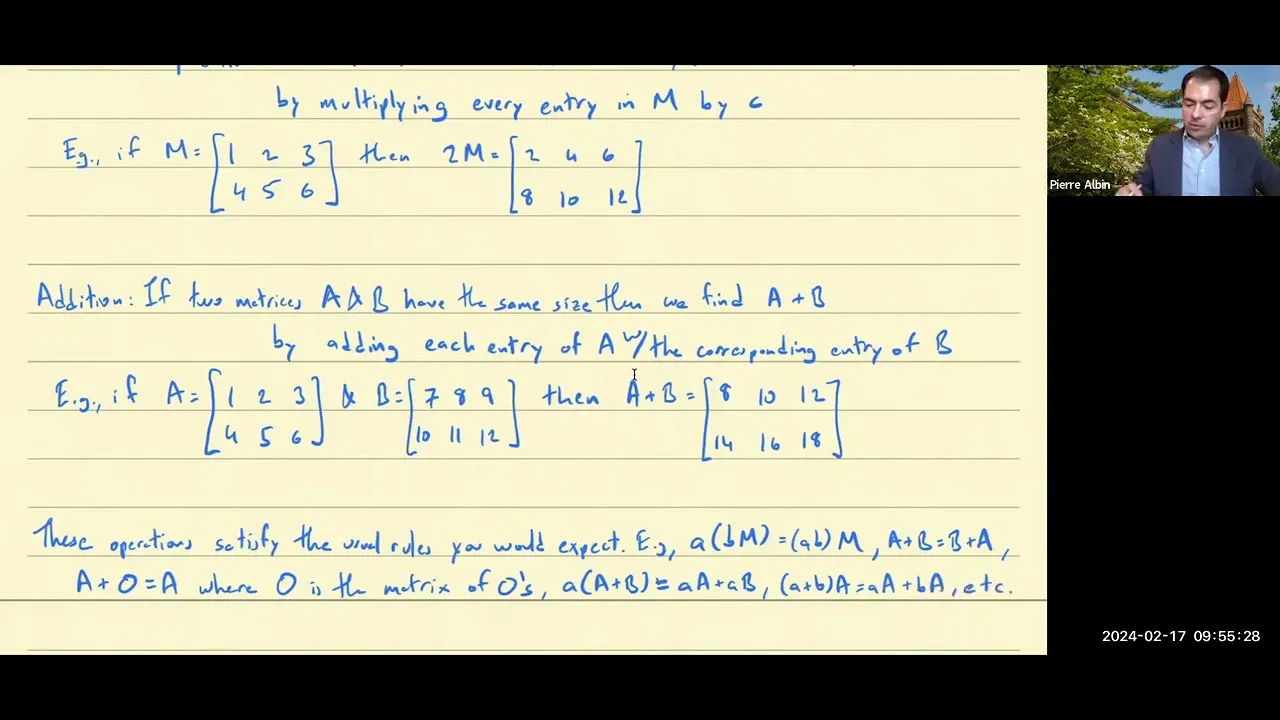 by multiplying every entry in M by c
E.g., if M = [1 2 3 then 2M = [2 4 6
4 5 6] 8 10 12]
Addition: If two matrices A & B have the same size then we find A + B
by adding each entry of A w/ the corresponding entry of B
E.g., if A = [1 2 3 & B = [7 8 9 then A+B = [8 10 12
4 5 6] 10 11 12] 14 16 18]
These operations satisfy the usual rules you would expect. E.g., a(bM) = (ab)M, A+B=B+A,
A+O=A where O is the matrix of O's, a(A+B) = aA+aB, (a+b)A=aA+bA, etc.
Pierre Albin
2024-02-17 09:55:28